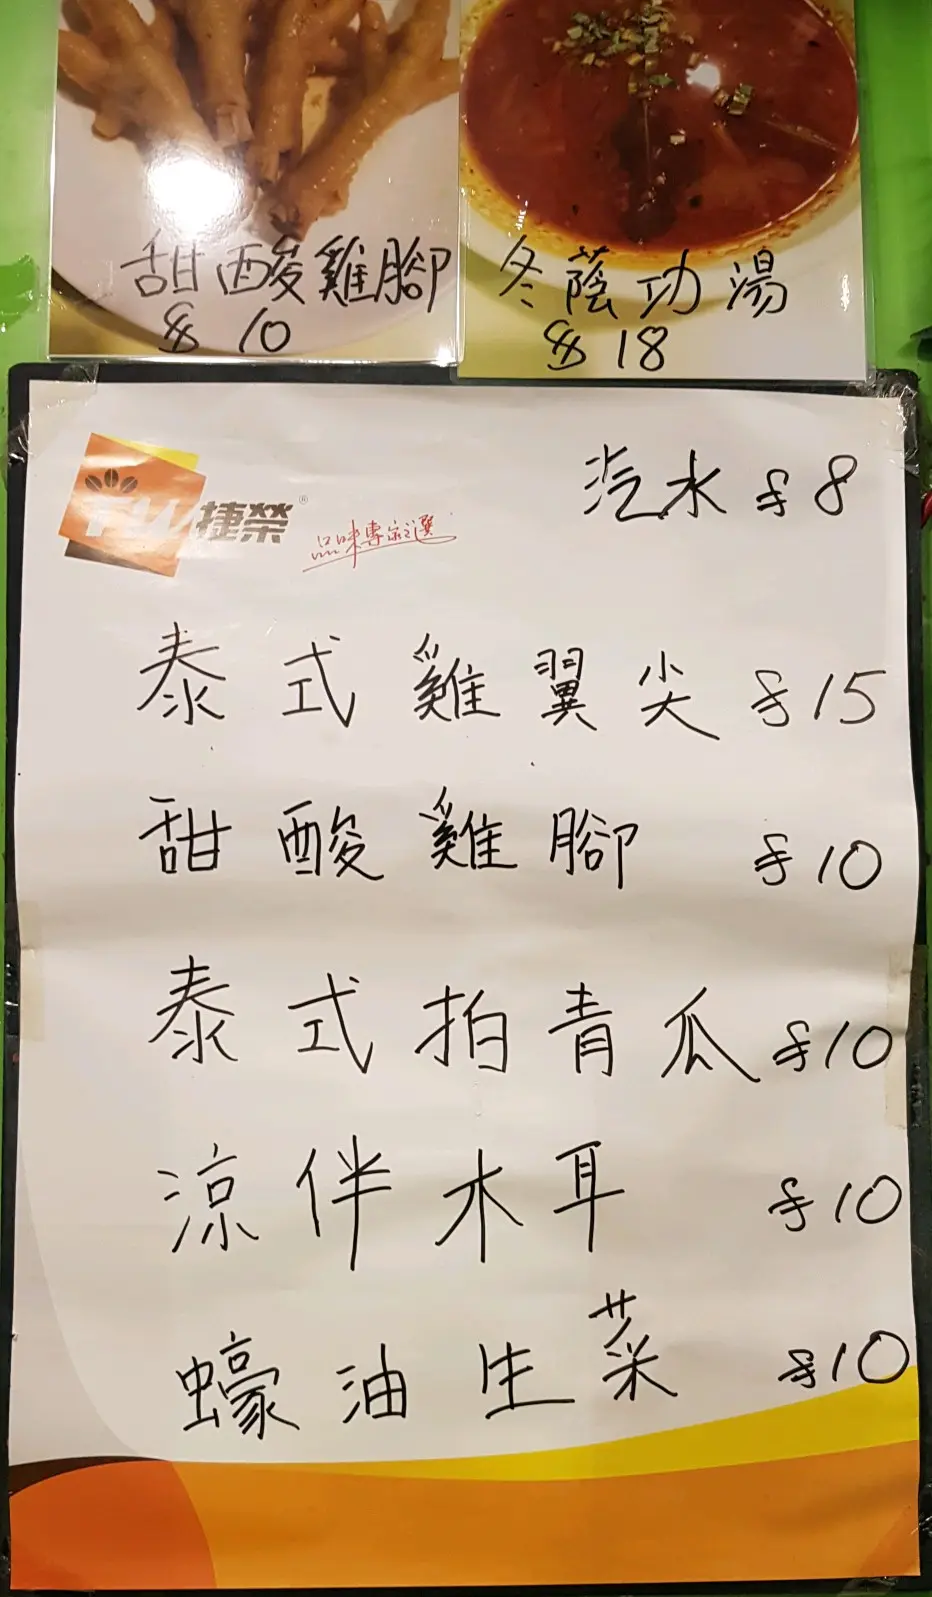 甜酸雞腳
$10
冬蔭功湯
$18
捷榮®
品味專家之選
汽水 $8
泰式雞翼尖 $15
甜酸雞腳 $10
泰式拍青瓜 $10
涼伴木耳 $10
蠔油生菜 $10